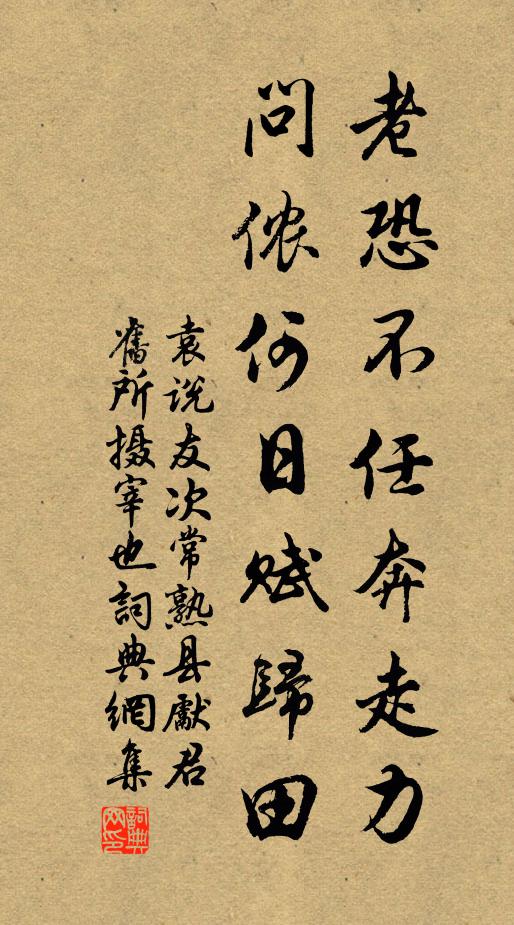 老恐不任奔走力
问侬何日赋歸田
袁说友次常熟县獻君
舊所摄宰也詞典網集
詞典网印